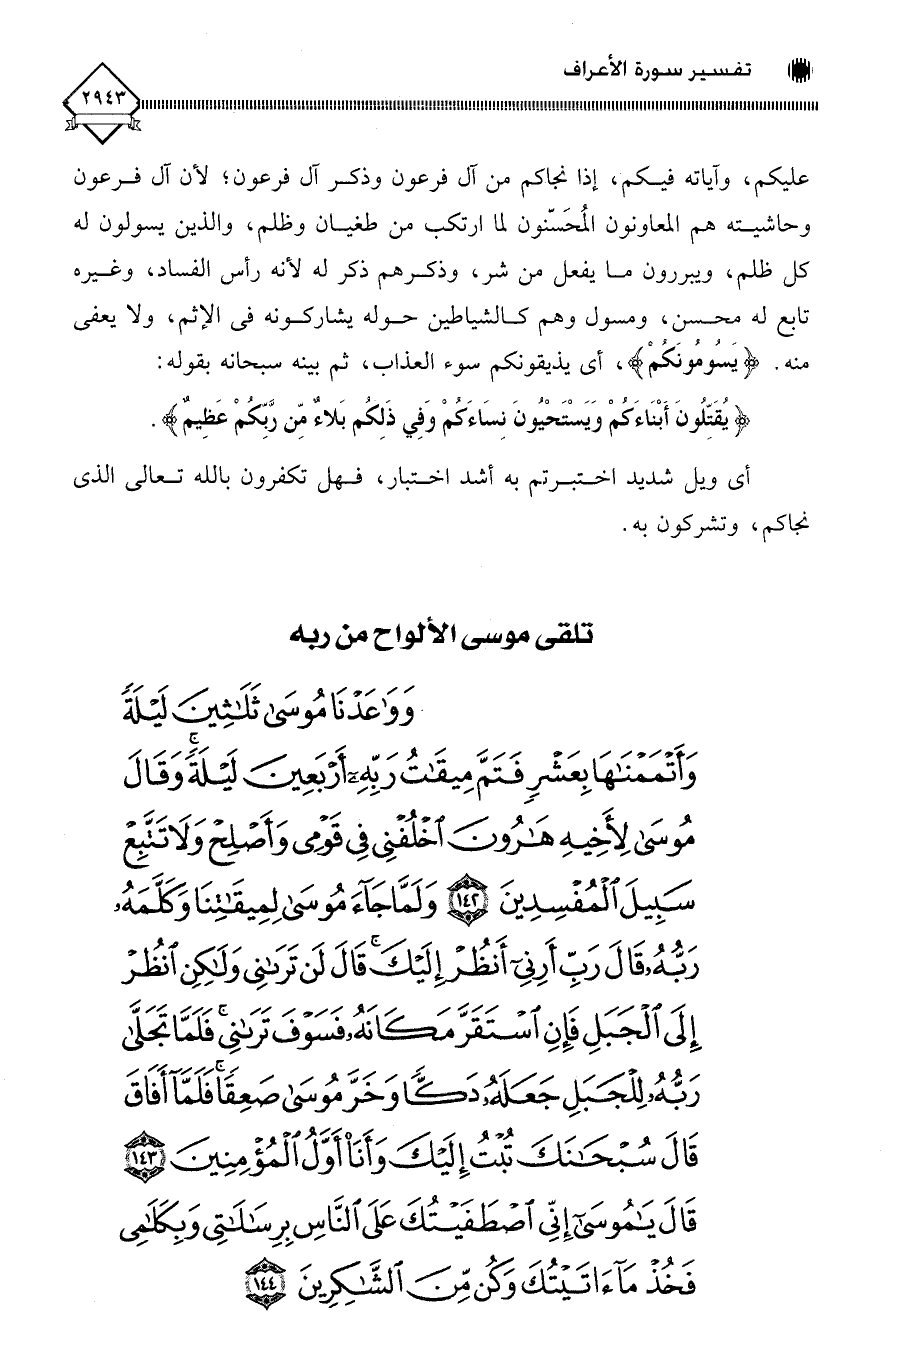 تفسير سورة الأعراف
٢٩٤٣
عليكم، وآياته فيكم، إذا نجاكم من آل فرعون وذكر آل فرعون؛ لأن آل فرعون
وحاشيته هم المعاونون المُحَسّنون لما ارتكب من طغيان وظلم، والذين يسولون له
كل ظلم، ويبررون ما يفعل من شر، وذكرهم ذكر له لأنه رأس الفساد، وغيره
تابع له محسن، ومسول وهم كالشياطين حوله يشاركونه فى الإثم، ولا يعفى
منه. ﴿يَسُومُونَكُمْ﴾، أى يذيقونكم سوء العذاب، ثم بينه سبحانه بقوله:
﴿يُقَتِّلُونَ أَبْنَاءَكُمْ وَيَسْتَحْيُونَ نِسَاءَكُمْ وَفِي ذَلِكُم بَلاءٌ مِّن رَّبِّكُمْ عَظِيمٌ﴾.
أى ويل شديد اختبرتم به أشد اختبار، فهل تكفرون بالله تعالى الذى
نجاكم، وتشركون به.
تلقى موسى الألواح من ربه
وَوَٰعَدْنَا مُوسَىٰ ثَلَٰثِينَ لَيْلَةً
وَأَتْمَمْنَٰهَا بِعَشْرٍ فَتَمَّ مِيقَٰتُ رَبِّهِۦٓ أَرْبَعِينَ لَيْلَةً ۚ وَقَالَ
مُوسَىٰ لِأَخِيهِ هَٰرُونَ ٱخْلُفْنِى فِى قَوْمِى وَأَصْلِحْ وَلَا تَتَّبِعْ
سَبِيلَ ٱلْمُفْسِدِينَ ١٤٢ وَلَمَّا جَآءَ مُوسَىٰ لِمِيقَٰتِنَا وَكَلَّمَهُۥ
رَبُّهُۥ قَالَ رَبِّ أَرِنِىٓ أَنظُرْ إِلَيْكَ ۚ قَالَ لَن تَرَىٰنِى وَلَٰكِنِ ٱنظُرْ
إِلَى ٱلْجَبَلِ فَإِنِ ٱسْتَقَرَّ مَكَانَهُۥ فَسَوْفَ تَرَىٰنِى ۚ فَلَمَّا تَجَلَّىٰ
رَبُّهُۥ لِلْجَبَلِ جَعَلَهُۥ دَكًّا وَخَرَّ مُوسَىٰ صَعِقًا ۚ فَلَمَّآ أَفَاقَ
قَالَ سُبْحَٰنَكَ تُبْتُ إِلَيْكَ وَأَنَا۠ أَوَّلُ ٱلْمُؤْمِنِينَ ١٤٣
قَالَ يَٰمُوسَىٰٓ إِنِّى ٱصْطَفَيْتُكَ عَلَى ٱلنَّاسِ بِرِسَٰلَٰتِى وَبِكَلَٰمِى
فَخُذْ مَآ ءَاتَيْتُكَ وَكُن مِّنَ ٱلشَّٰكِرِينَ ١٤٤